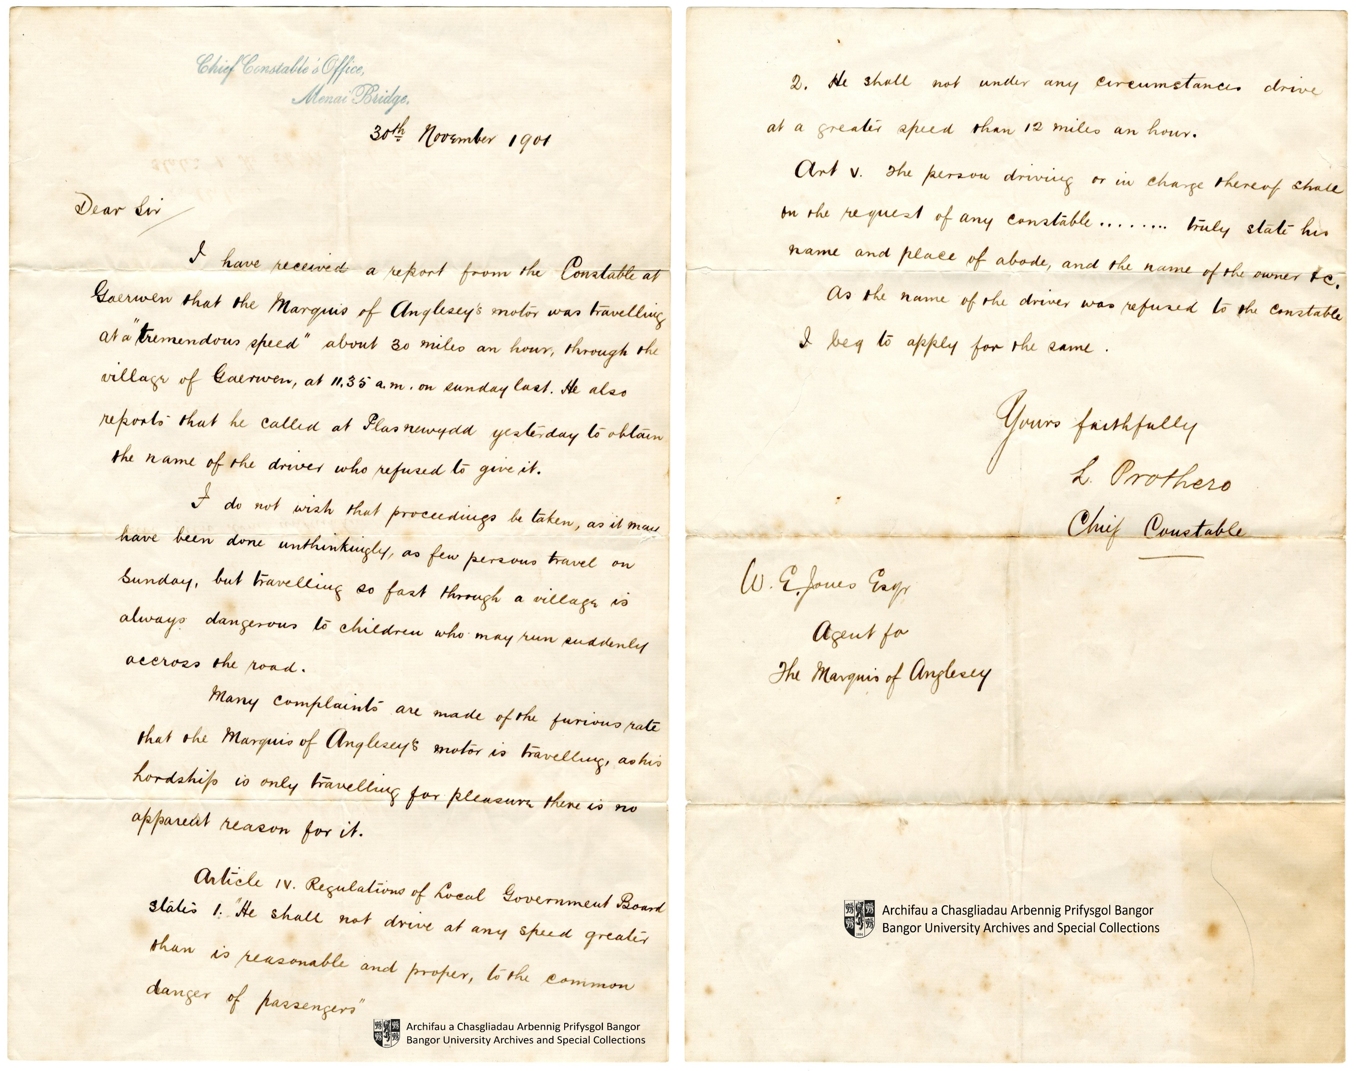 Chief Constable's Office,
Menai Bridge,
30th November 1901
Dear Sir
I have received a report from the Constable at
Gaerwen that the Marquis of Anglesey's motor was travelling
at a "tremendous speed" about 30 miles an hour, through the
village of Gaerwen, at 11.35 a.m. on sunday last. He also
reports that he called at Plasnewydd yesterday to obtain
the name of the driver who refused to give it.
I do not wish that proceedings be taken, as it may
have been done unthinkingly, as few persons travel on
Sunday, but travelling so fast through a village is
always dangerous to children who may run suddenly
accross the road.
Many complaints are made of the furious rate
that the Marquis of Anglesey's motor is travelling, as his
Lordship is only travelling for pleasure there is no
apparent reason for it.
Article IV. Regulations of Local Government Board
states 1. "He shall not drive at any speed greater
than is reasonable and proper, to the common
danger of passengers"
Archifau a Chasgliadau Arbennig Prifysgol Bangor
Bangor University Archives and Special Collections
2. He shall not under any circumstances drive
at a greater speed than 12 miles an hour.
Art V. The person driving or in charge thereof shall
on the request of any constable ........ truly state his
name and place of abode, and the name of the owner &c.
As the name of the driver was refused to the constable
I beg to apply for the same.
Yours faithfully
L. Prothero
Chief Constable
W. E. Jones Esqr
Agent for
The Marquis of Anglesey
Archifau a Chasgliadau Arbennig Prifysgol Bangor
Bangor University Archives and Special Collections